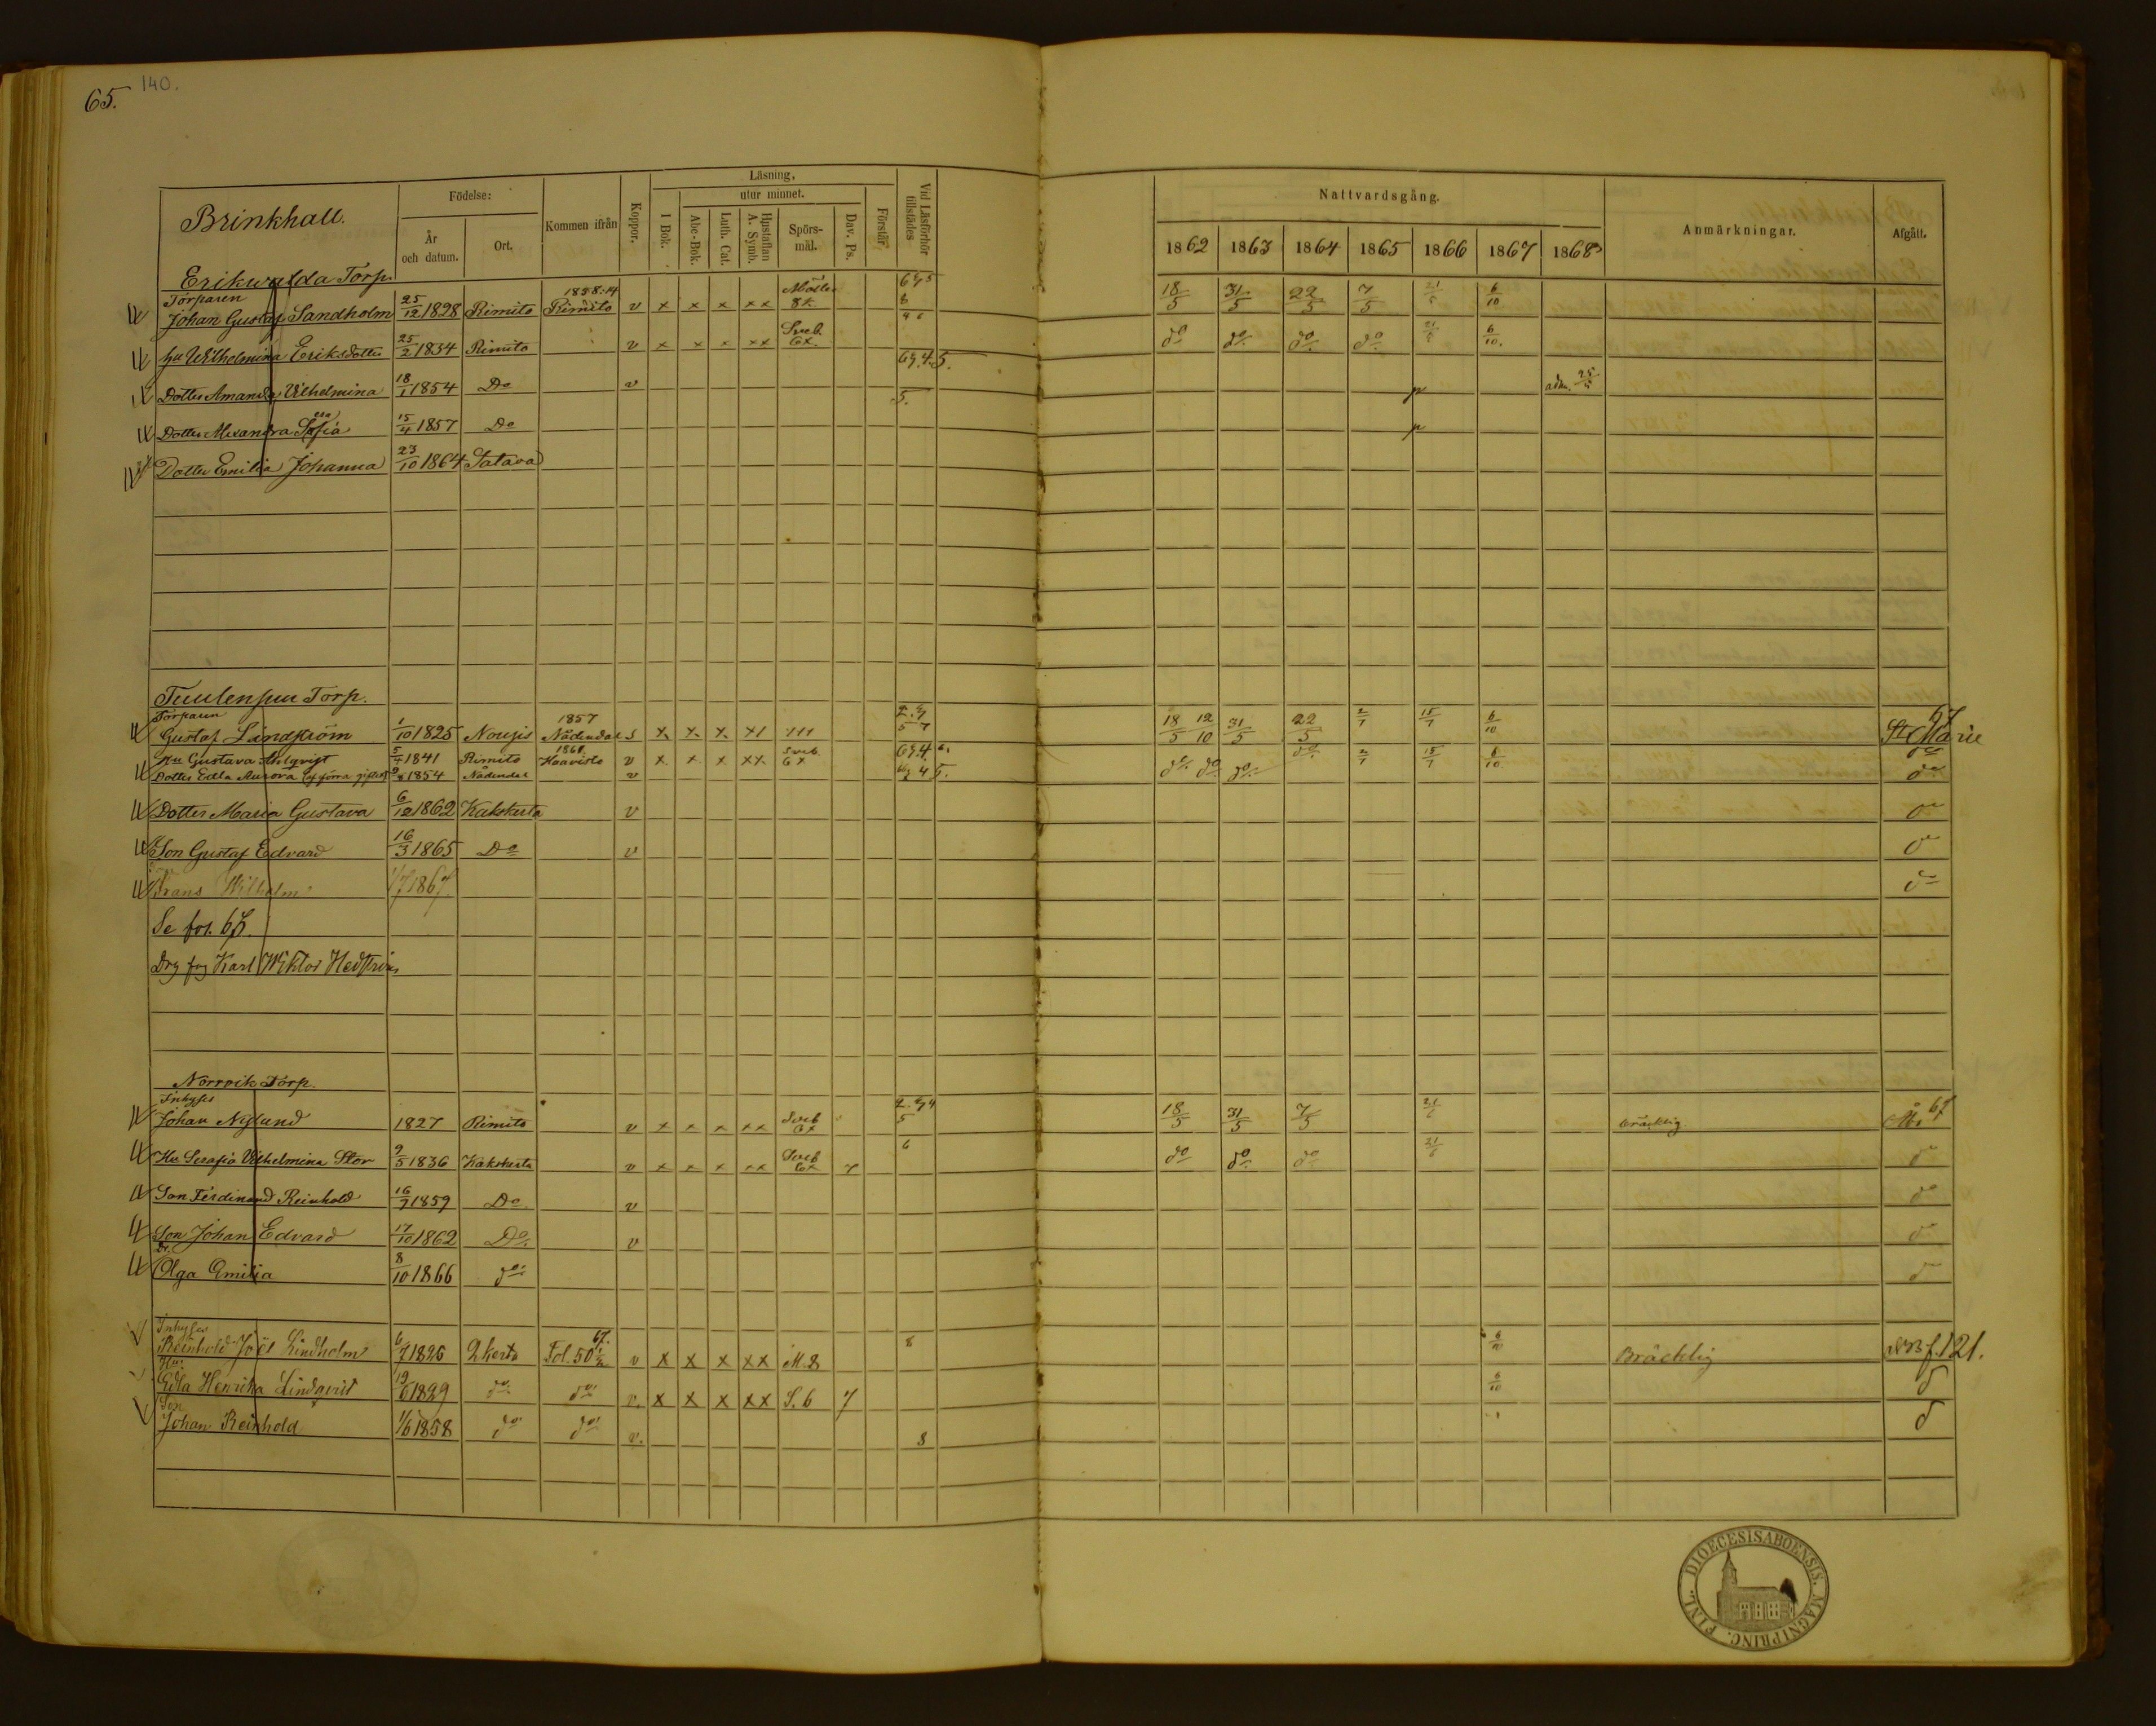 65. 140.
Brinkhall.
Födelse:
År och datum.
Ort.
Kommen ifrån
Koppor.
Läsning.
utur minnet.
I Bok.
Abc-Bok.
Luth. Cat.
Hustaflan A. Symb.
Spörs-mål.
Dav. Ps.
Förstår
Vid Läsförhör tillstädes
Nattvardsgång.
1862 1863 1864 1865 1866 1867 1868
Anmärkningar.
Afgått.
Erikwalda Torp.
Torparen 1858.
Johan Gustaf Sandholm 25/12 1828 Rimito Rimito v x x x xx 8k. 18/5 31/5 22/5 7/5 21/5 6/10
hu Wilhelmina Eriksdotter 25/2 1834 Rimito v x x x xx Sveb. 6x. do do do do 21/5 6/10.
Dotter Amanda Vilhelmina 18/1 1854 Do v 5. p adm.
Dotter Alexandra Sofia 15/4 1857 Do p
Dotter Emilia Johanna 23/10 1864 Satava
Tuulensuu Torp.
Torparen 1857
Gustaf Lindström 1/10 1825 Nousis Nådendal s x x x x1 111 18/5 12/10 31/5 22/5 2/7 15/7 6/10 67 St Marie
Hu Gustava Ahlqvist 5/7 1841 Rimito Kaavisto v x x x xx Sveb. 6x do do do do 2/7 15/7 6/10 do
Dotter Edla Aurora (af förra giftet) 1854 Nådendal v do
Dotter Maria Gustava 6/12 1862 Kakskerta v do
Son Gustaf Edvard 16/3 1865 Do v do
Frans Wilhelm 1/7 1867. do
Se fol. 67.
Drg frg Karl Wiktor Hedström
Norrvik Torp.
Inhyses
Johan Nylund 1827 Rimito v x x x xx Sveb 6x 18/5 31/5 7/5 21/6 bräcklig 67
Hu Serafia Vilhelmina Stor 9/5 1836 Kakskerta v x x x xx Sveb 6x 7 6 do do do 21/6 do
Son Ferdinand Reinhold 16/7 1859 Do v do
Son Johan Edvard 17/10 1862 Do. v do
Dr.
Olga Emilia 8/10 1866 do d
Inhyses
Reinhold Joel Lindholm 6/7 1826 Kerta 67. Fol. 50 v x x x xx M. 8 8 6/10 Bräcklig f. 121.
Hu
Edla Henrika Lindqvist 19/6 1829 do do v. x x x xx S. 6 7 6/10 d
Son
Johan Reinhold 1/6 1858 do do v. 8 d
DIOECESIS ABOENSIS. MAGNI PRINC. FINL.